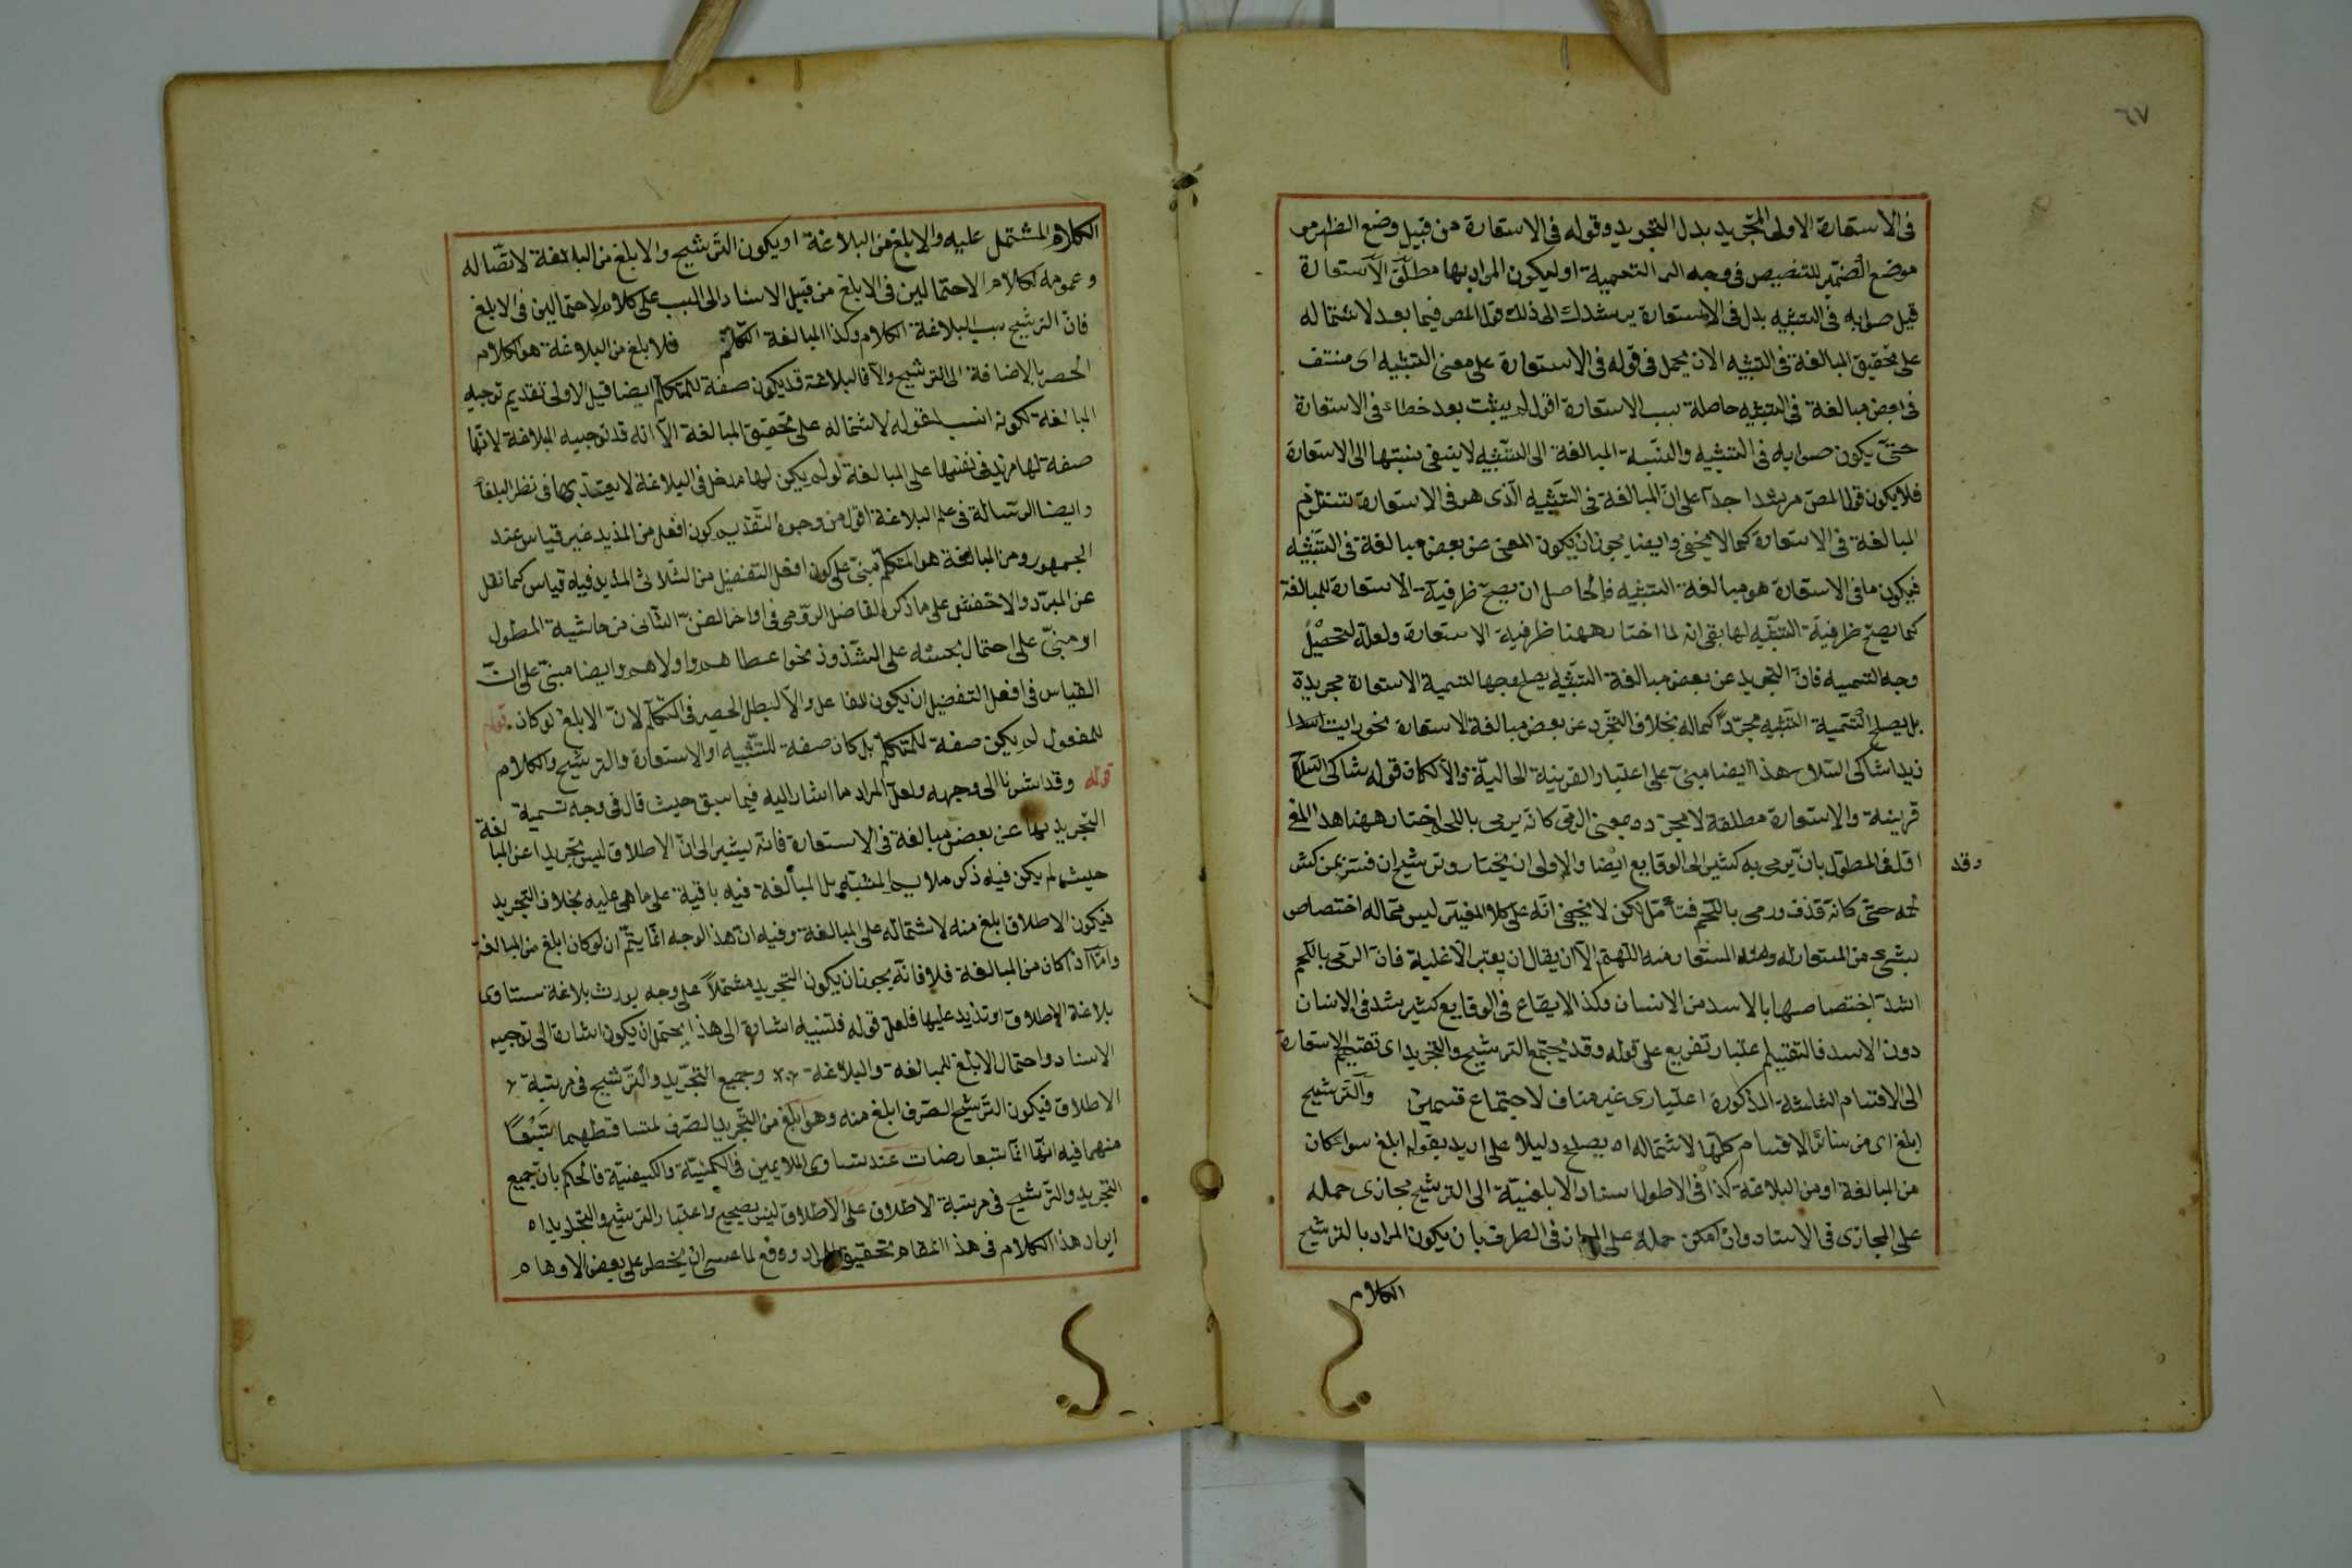 ٦٧
فى الاستعارة الاولى التجريد بدل التجريد وقوله فى الاستعارة من قبيل وضع الظاهر
موضع الضمير للتخصيص فى وجه التسمية او ليكون المراد بها مطلق الاستعارة
قيل صوابه فى التشبيه بدل فى الاستعارة يرشدك الى ذلك قول المص فيما بعد لاشتماله
على تحقيق المبالغة فى التشبيه الا ان يحمل فى قوله فى الاستعارة على معنى التشبيه اى منتف
فى بعض مبالغة فى التشبيه حاصلة بسبب الاستعارة اقول لم يثبت بعد خطاء فى الاستعارة
حتى يكون صوابه فى التشبيه والنسبة المبالغة الى التشبيه لا ينفى نسبتها الى الاستعارة
فلا يكون قول المص مرشدا جدا على ان المبالغة فى التشبيه الذى هو فى الاستعارة تستلزم
المبالغة فى الاستعارة كما لا يخفى وايضا يجوز ان يكون المعنى عن بعض مبالغة فى التشبيه
فيكون ما فى الاستعارة هو مبالغة التشبيه فالحاصل ان يصح ظرفية الاستعارة للمبالغة
كما يصح ظرفية التشبيه لها بقى انه لما اختار ههنا ظرفية الاستعارة ولعله لتحصيل
وجه التسميه فان التجريد عن بعض مبالغة التشبيه يصلح وجها لتسمية الاستعارة مجريدة
بل يصلح لتسمية التشبيه مجردا كماله بخلاف التجرد عن بعض مبالغة الاستعارة نحو رايت اسدا
زيدا شاكى السلاح هذا ايضا مبنى على اعتبار القرينة الحالية والا لكان قوله شاكى السلاح
قرينة والاستعارة مطلقة لا مجردة بمعنى الرمى كانه يرمى باللحم اختار ههنا هذا المع
اقل فى المطول بان يرمى به كثير الى الوقايع ايضا والاولى ان يختار وترشيح ان فسر بمن كثر
وقد
لحمه حتى كانه قذف ورمى باللحم فتأمل لكن لا يخفى انه على كلا المفيس ليس محاله اختصاص
بشىء من المستعار له ومنه المستعار منه اللهم الا ان يقال ان يعتبر الاغلبية فان الرمى باللحم
اشد اختصاصها بالاسد من الانسان وكذا الايقاع فى الوقايع كثير شد فى الانسان
دون الاسد فالتقييم اعتبار تفريع على قوله وقد يجتمع الترشيح والتجريد اى تقسيم الاستعارة
الى الاقسام الثلثة المذكورة اعتبارى غير مناف لاجتماع قسمين والترشيح
ابلغ اى من سائر الاقسام كلها لاشتماله اه يصلح دليلا على اريد بقوله ابلغ سواء كان
من المبالغة او من البلاغة كذا فى الاطول اسناد الابلغية الى الترشيح مجازى حمله
على المجازى فى الاسناد وان امكن حمله على المجاز فى الطرف بان يكون المراد بالترشيح
الكلام
الكلام المشتمل عليه والابلغ من البلاغة او يكون الترشيح والابلغ من البلاغة لاتصاله
وعمومه لكلام الاحتمالين فى الابلغ من قبيل الاسناد الى السبب على كلام لاحتمالين فى الابلغ
فان الترشيح سبب لبلاغة الكلام وكذا المبالغة التكلم فلا ابلغ من البلاغة هو الكلام
الحصر بالاضافة الى الترشيح والا فالبلاغة قد يكون صفة للمتكلم ايضا قيل الاولى تقديم توجيه
المبالغة لكونه انسب لقوله لاشتماله على تحقيق المبالغة الا انه قد توجيه البلاغة لانها
صفة لها مزيد فى نفسها على المبالغة لو لم يكن لها مدخل فى البلاغة لا يعتد بها فى نظر البلغاء
وايضا الرسالة فى علم البلاغة اقول من وجوه التقديم كون افعل من المزيد غير قياس عند
الجمهور ومن المبالغة هو المتكلم مبنى على كون افعل التفضيل من الثلاثى المزيد فيه قياس كما نقل
عن المبرد والاخفش على ما ذكره الفاضل الرومى فى اواخر الفن الثانى من حاشية المطول
او مبنى على احتمال بحسنه على الشذوذ نحو اعطاهم واولاهم وايضا مبنى على ان
القياس فى افعل التفضيل ان يكون للفاعل والا لبطل الحصر فى التكلم لان الابلغ لو كان
للمفعول لم يكن صفة للمتكلم بل كان صفة للتشبيه او الاستعارة والترشيح والكلام
قوله وقد اشرنا الى وجهه ولعل المراد ما اشار اليه فيما سبق حيث قال فى وجه تسمية
التجريد بها عن بعض مبالغة فى الاستعارة فانه يشير الى ان الاطلاق ليس تجريدا عن المبالغة
حيث لم يكن فيه ذكر ملايم المشبه بل المبالغة فيه باقية على ما هى عليه بخلاف التجريد
فيكون الاطلاق ابلغ منه لاشتماله على المبالغة وفيه ان هذا الوجه انما يتم ان لو كان ابلغ من المبالغة
واما اذا كان من المبالغة فلا فانه يجوز ان يكون التجريد مشتملا على وجه يورث بلاغة ستاوى
بلاغة الاطلاق او تزيد عليها فلعل قوله فلتنبيه اشارة الى هذا يحتمل ان يكون اشارة الى توجيه
الاسناد واحتمال الابلغ للمبالغة والبلاغة وجميع التجريد والترشيح فى مرتبة
الاطلاق فيكون الترشيح الصرف ابلغ منه وهو ابلغ من التجريد الصرف لتساقطهما
منهما فيه انها انما يتعارضات عند تساوى الملايمين فى الكمية والكيفية فالحكم بان جميع
التجريد والترشيح فى مرتبة الاطلاق على الاطلاق ليس بصحيح واعتبار الترشيح والتجريد اه
ايراد هذا الكلام فى هذا المقام تحقيق المراد ودفع لما عسى ان يخطر على بعض الاوهام